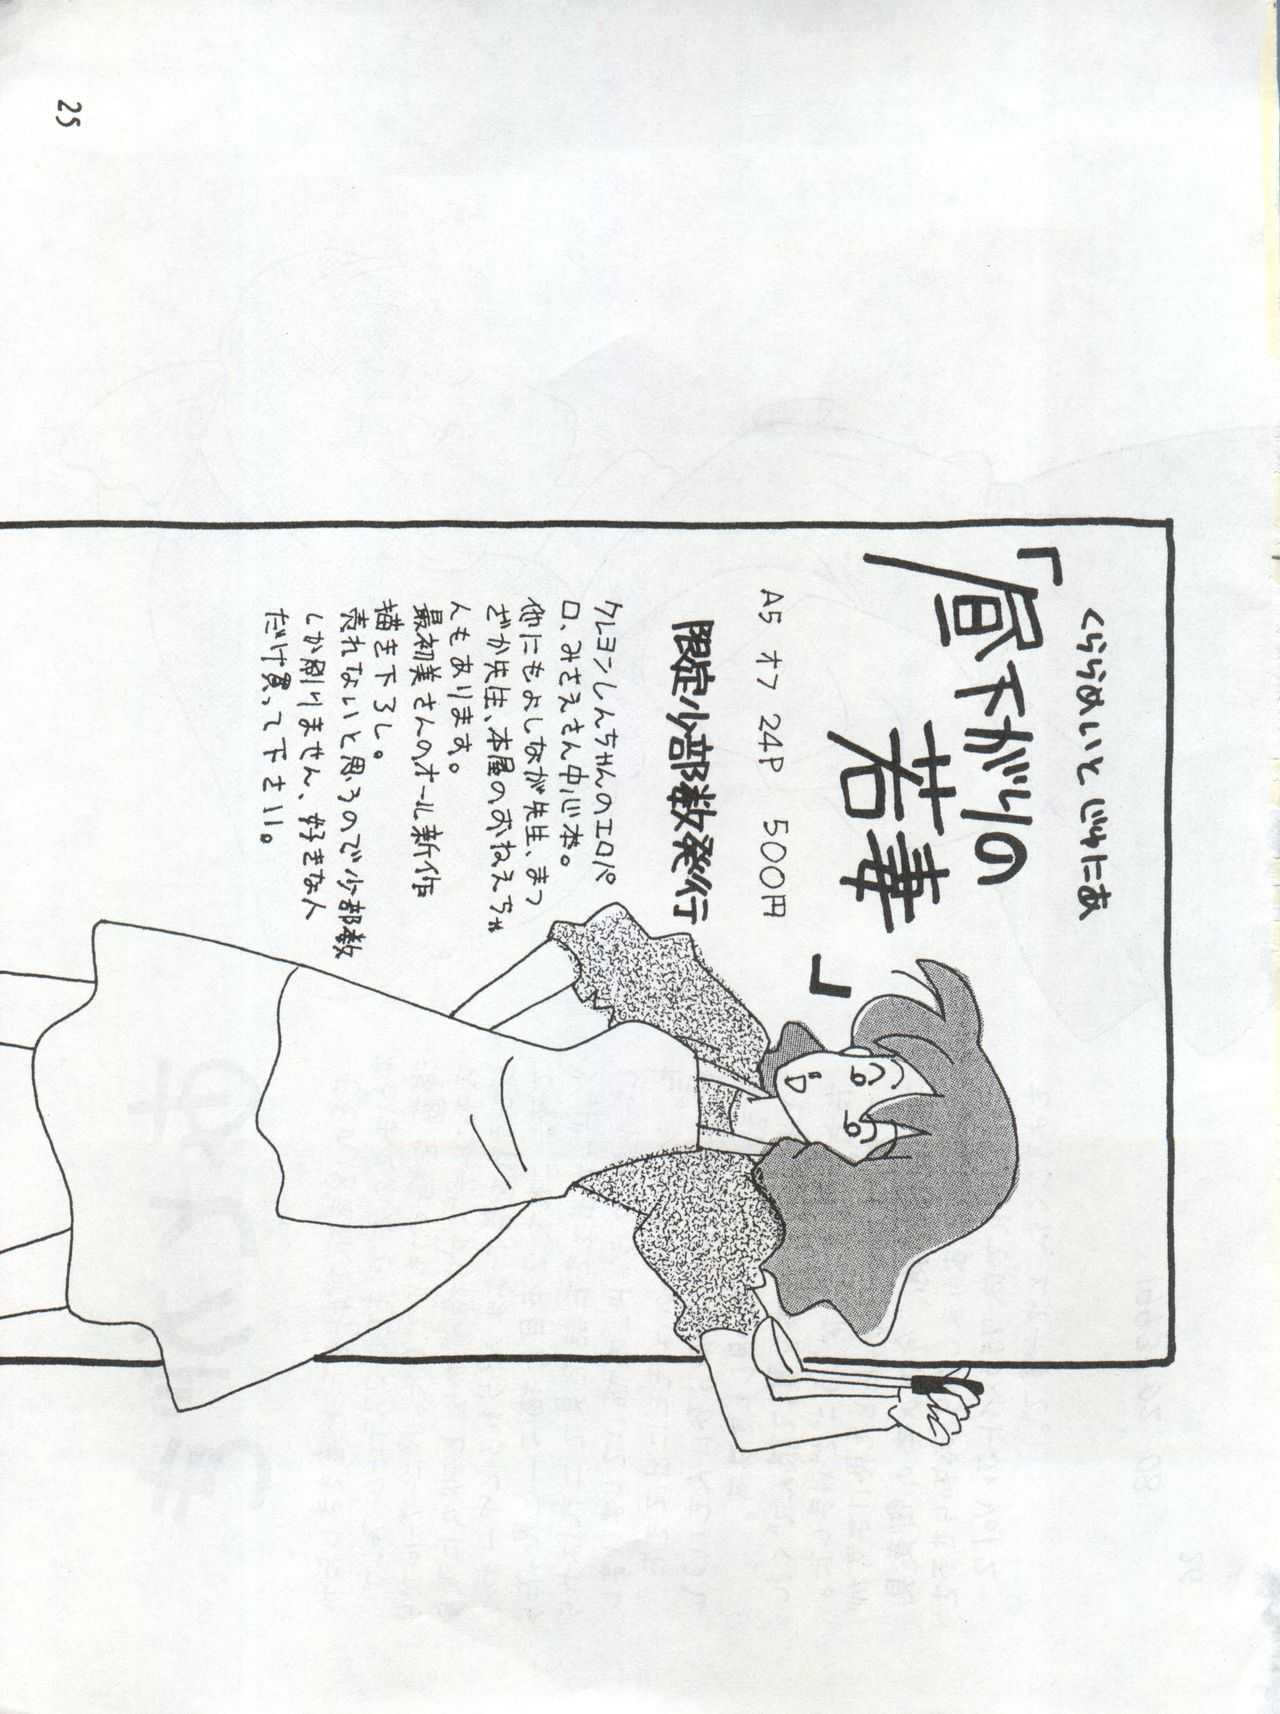 くららめいと じゃたあ
「昼下がりの
若妻」
A5 オフ 24P 500円
限定少部数発行
クレヨンしんちゃんのエロパ
ロ、みさえさん中心本。
他にもよしなが先生、まつ
ざか先生、本屋のおねえちゃ
んもあります。
最初美さんのオール新作
描き下ろし。
売れないと思うので少部数
しか刷りません、好きな人
だけ買って下さい。
25